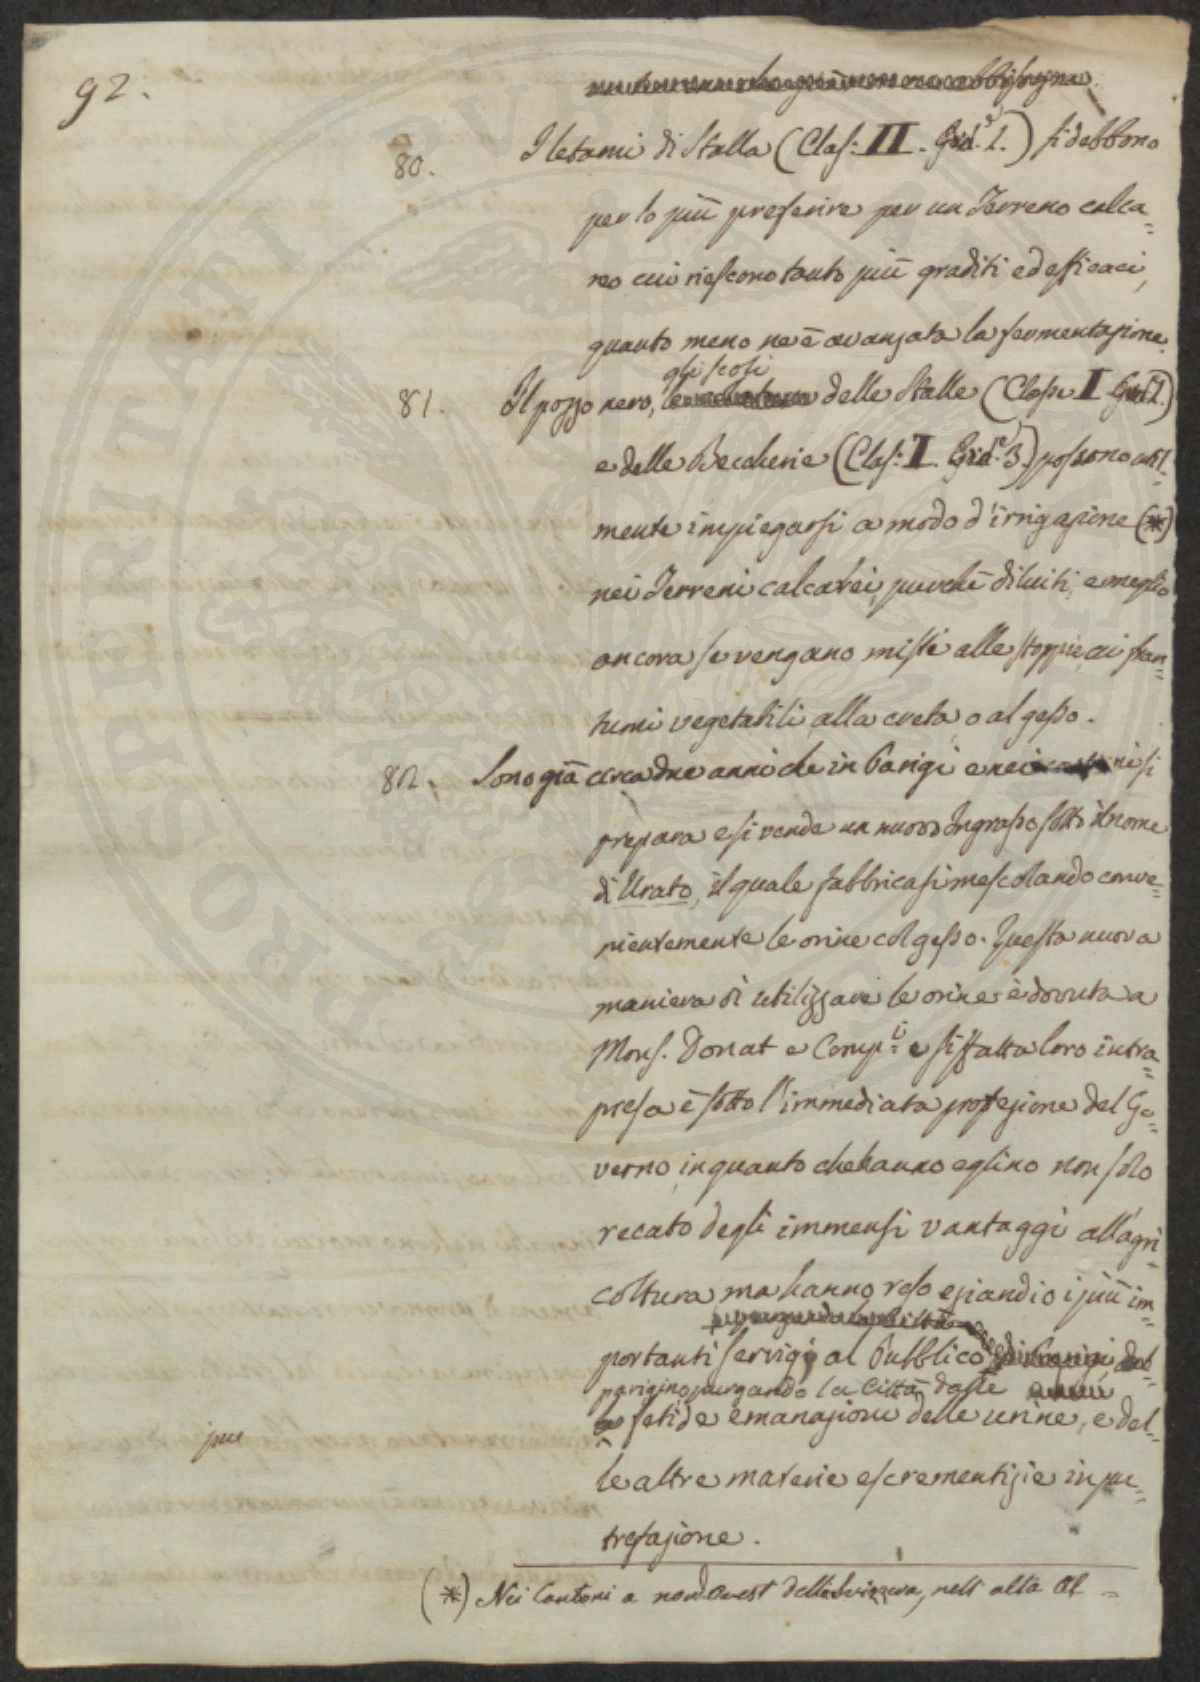 92.
abbisogna.
80. I letami di Stalla (Clas: II. Grd.e 1.) si debbono
per lo più preferire per un Terreno calca=
reo cui riescono tanto più graditi ed efficaci,
quanto meno ne è avanzata la fermentazione.
gli scoli
81. Il pozzo nero, delle Stalle (Classe I Grd. 1.)
e delle Beccherie (Clas: I. Grd.e 3.) possono util=
mente impiegarsi a modo d'irrigazione (*)
nei Terreni calcarei, purchè diluiti, e meglio
ancora se vengano misti alle stoppie, ai fran=
tumi vegetabili, alla creta, o al gesso.
82. Sono già circa due anni che in Parigi e nei si
prepara e si vende un nuovo Ingrasso sotto il nome
di Urato, il quale fabbricasi mescolando conve=
nientemente le orine col gesso. Questa nuova
maniera di utilizzare le orine è dovuta a
Mons. Donat e Comp.i e siffatta loro intra=
presa è sotto l'immediata protezione del Go=
verno, inquanto che hanno eglino non solo
recato degli immensi vantaggi all'agri=
coltura, ma hanno reso eziandio i più im=
purgando la città
portanti servigj al Pubblico di Parigi,
parigino, purgando la Città dalle
fetide emanazioni delle urine, e del=
pu
le altre materie escrementizie in pu=
trefazione.
(*) Nei Cantoni a nordovest della Svizzera, nell'alta Al=
PROSPERITATI PUBLICAE